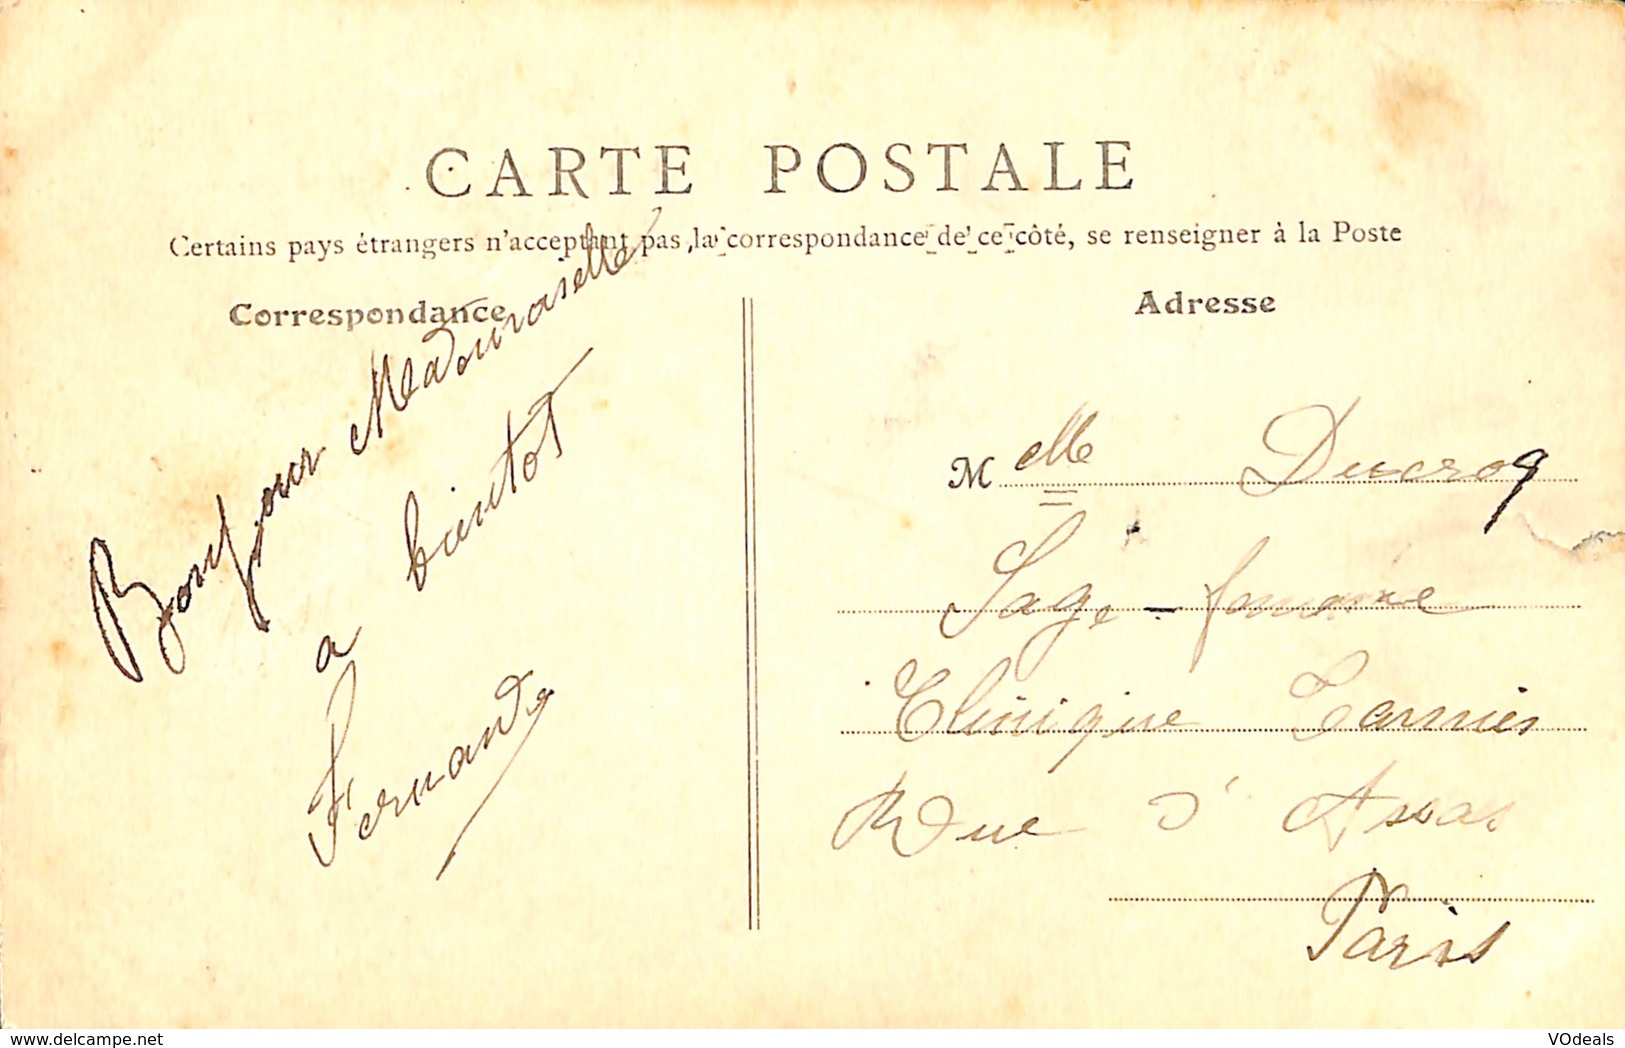 CARTE POSTALE
Certains pays étrangers n'acceptant pas la correspondance de ce côté, se renseigner à la Poste
Correspondance
Bonjour Mademoiselle
a bientot
Fernand
Adresse
Melle Ducroq
Sage-femme
Clinique Tarnier
Rue d'Assas
Paris
delcampe.net
VOdeals